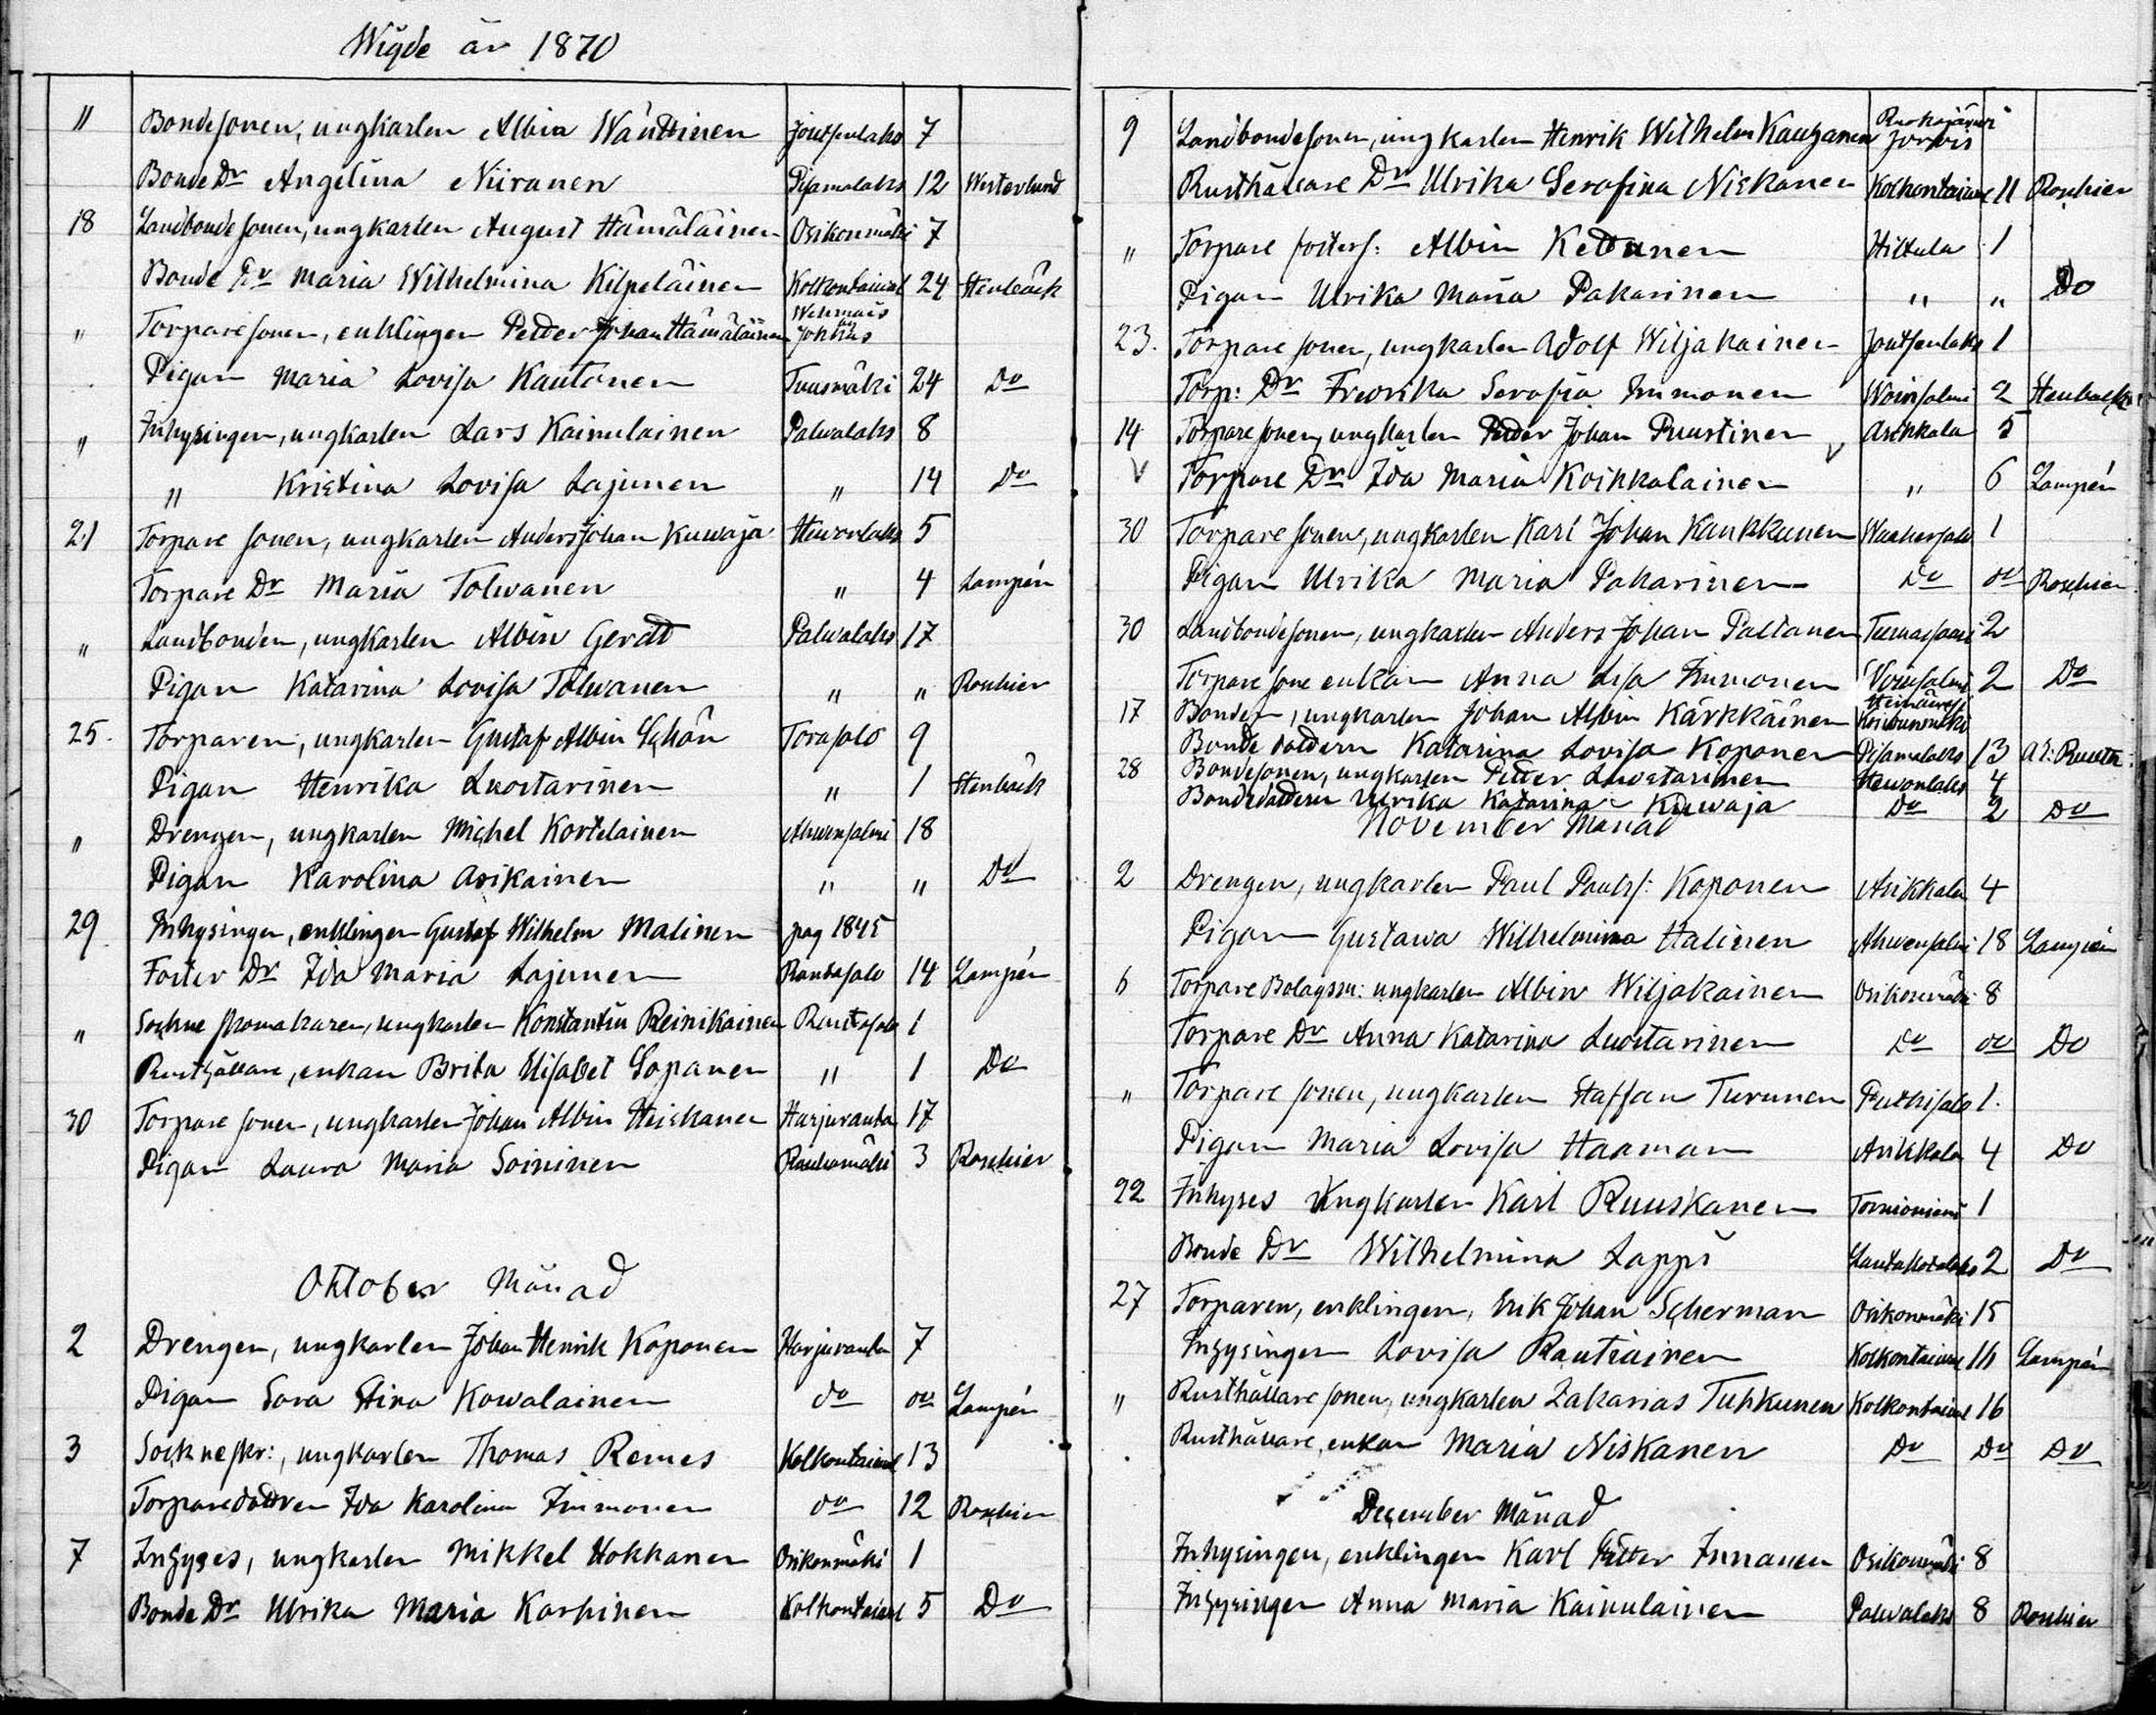 Wigde år 1870
11 Bondesonen, ungkarlen Albin Wänttinen Joutsenlaks 7
Bonde Dr Angelina Niiranen Pisamalaks 12 Westerlund
18 Landbondesonen, ungkarlen August Hämäläinen Osikonmäki 7
Bonde Dr Maria Wilhelmina Kilpeläinen Kolkontaival 24 Stenbäck
" Torparesonen, enklingen Petter Johan Hämäläinen Jokkas
Pigan Maria Lovisa Kautonen Tuusmäki 24 Do
" Inhysingen, ungkarlen Lars Kainulainen Palwalaks 8
" Kristina Lovisa Lajunen " 14 Do
21 Torparesonen, ungkarlen Anders Johan Kuwaja Heuvonlaks 5
Torpare Dr Maria Tolwanen " 4 Lampén
" Landbonden, ungkarlen Albin Gerdt Palwalaks 17
Pigan Katarina Lovisa Tolwanen " " Roschier
25. Torparen, ungkarlen Gustaf Albin Schön Torasalo 9
Pigan Henrika Luostarinen " 1 Stenbäck
" Drengen, ungkarlen Michel Kortelainen Ahwensalmi 18
Pigan Karolina Asikainen " " Do
29 Inhysingen, enklingen Gustaf Wilhelm Malinen pag 1845
Foster Dr Ida Maria Lajunen Rantasalo 14 Lampén
" Sockneskomakaren, ungkarlen Konstantin Reinikainen Rantasalo 1
Rusthållare, enkan Brita Elisabet Sopanen " 1 Do
30 Torparesonen, ungkarlen Johan Albin Heiskanen Harjuranta 17
Pigan Laura Maria Soininen Rauhamäki 3 Roschier
Oktober Månad
2 Drengen, ungkarlen Johan Henrik Koponen Harjuranta 7
Pigan Sara Stina Kowalainen do do Lampén
3 Sockneskr:, ungkarlen Thomas Remes Kolkontaival 13
Torparedottren Ida Karolina Immonen do 12 Roschier
7 Inhyses, ungkarlen Mikkel Hokkanen Osikonmäki 1
Bonde Dr Ulrika Maria Karhinen Kolkontaival 5 Do
9 Landbondesonen, ungkarlen Henrik Wilhelm Kauhanen Ruokojärvi Jorvis
Rusthållare Dr Ulrika Serafina Niskanen Kolkontaival 11 Roschier
" Torpare fosters: Albin Kettunen Hiltula 1
Pigan Ulrika Maria Pakarinen " " Do
23. Torparesonen, ungkarlen Adolf Wiljakainen Joutsenlaks 1
Torp: Dr Fredrika Serafia Immonen Woinsalmi 2 Stenbäck
14 Torparesonen, ungkarlen Petter Johan Puustinen Asikkala 5
Torpare Dr Ida Maria Koikkalainen " 6 Lampén
30 Torparesonen, ungkarlen Karl Johan Kaukkunen Waahersalo 1
Pigan Ulrika Maria Pakarinen do do Roschier
30 Landbondesonen, ungkarlen Anders Johan Paltanen 2
Torparesone enkan Anna Lisa Immonen Voinsalmi 2 Do
17 Bonden, ungkarlen Johan Albin Kärkkäinen Heinävesi
Bonde dottern Katarina Lovisa Koponen Pisamalaks 13
28 Bondesonen, ungkarlen Petter Luostarinen Heuvonlaks 4
Bondedottern Ulrika Katarina Kuwaja Do 2 Do
November Månad
2 Drengen, ungkarlen Paul Paulss: Koponen Asikkala 4
Pigan Gustawa Wilhelmina Halinen Ahwensalmi 18 Lampén
6 Torpare Bolagsm: ungkarlen Albin Wiljakainen Osikonmäki 8
Torpare Dr Anna Katarina Luostarinen Do do Do
" Torparesonen, ungkarlen Staffan Turunen Purhisalo 1.
Pigan Maria Lovisa Haaman Asikkala 4 Do
22 Inhyses Ungkarlen Karl Ruuskanen Tornioniemi 1
Bonde Dr Wilhelmina Lappi Lautakotalaks 2 Do
27 Torparen, enklingen, Erik Johan Scherman Osikonmäki 15
Inhysingen Lovisa Rautiainen Kolkontaival 16 Lampén
" Rusthållaresonen, ungkarlen Zakarias Tuhkunen Kolkontaival 16
Rusthållare, enkan Maria Niskanen Do Do Do
December Månad
Inhysingen, enklingen Karl Petter Innanen Osikonmäki 8
Inhysingen Anna Maria Kainulainen Palwalaks 8 Roschier